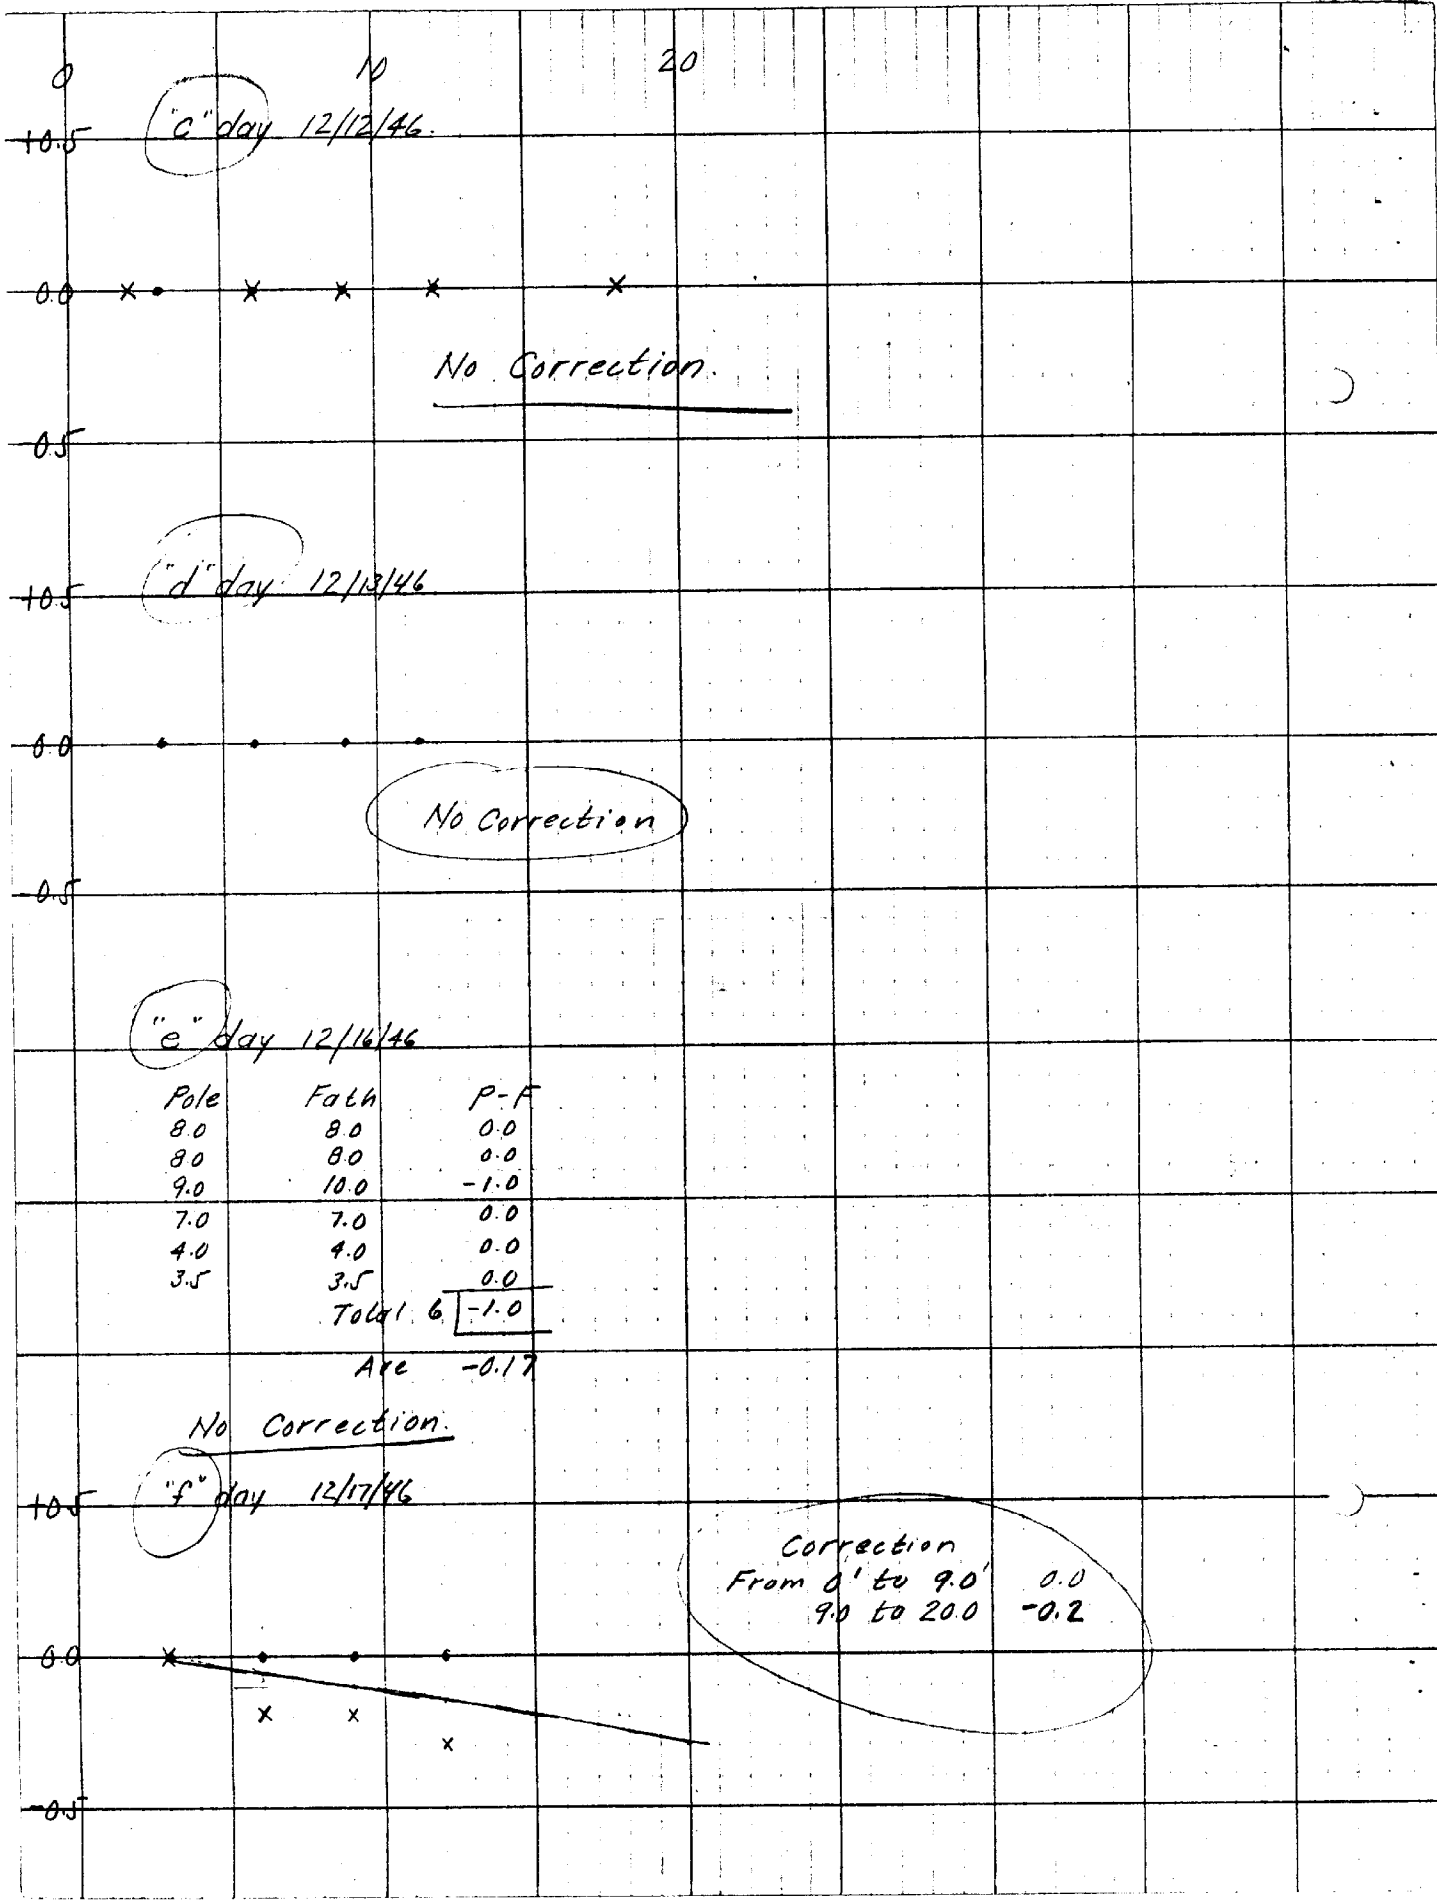 0 10 20
"c" day 12/12/46.
+0.5
0.0
No Correction.
-0.5
"d" day 12/13/46
+0.5
0.0
No Correction
-0.5
"e" day 12/16/46
Pole Fath P-F
8.0 8.0 0.0
8.0 8.0 0.0
9.0 10.0 -1.0
7.0 7.0 0.0
4.0 4.0 0.0
3.5 3.5 0.0
Total 6 -1.0
Ave -0.17
No Correction.
"f" day 12/17/46
+0.5
Correction
From 0' to 9.0' 0.0
9.0 to 20.0 -0.2
0.0
-0.5